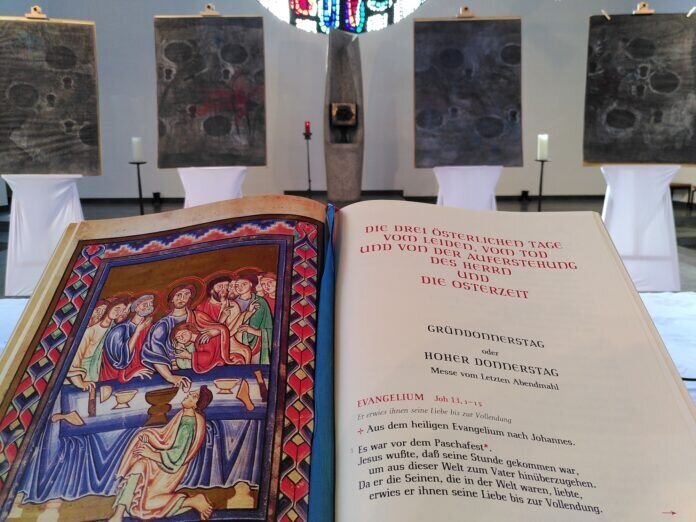 DIE DREI ÖSTERLICHEN TAGE
VOM LEIDEN, VOM TOD
UND VON DER AUFERSTEHUNG
DES HERRN
UND
DIE OSTERZEIT
GRÜNDONNERSTAG
oder
HOHER DONNERSTAG
Messe vom Letzten Abendmahl
EVANGELIUM Joh 13, 1–15
Er erwies ihnen seine Liebe bis zur Vollendung
✢ Aus dem heiligen Evangelium nach Johannes.
1 Es war vor dem Paschafest*.
Jesus wußte, daß seine Stunde gekommen war,
um aus dieser Welt zum Vater hinüberzugehen.
Da er die Seinen, die in der Welt waren, liebte,
erwies er ihnen seine Liebe bis zur Vollendung.
→